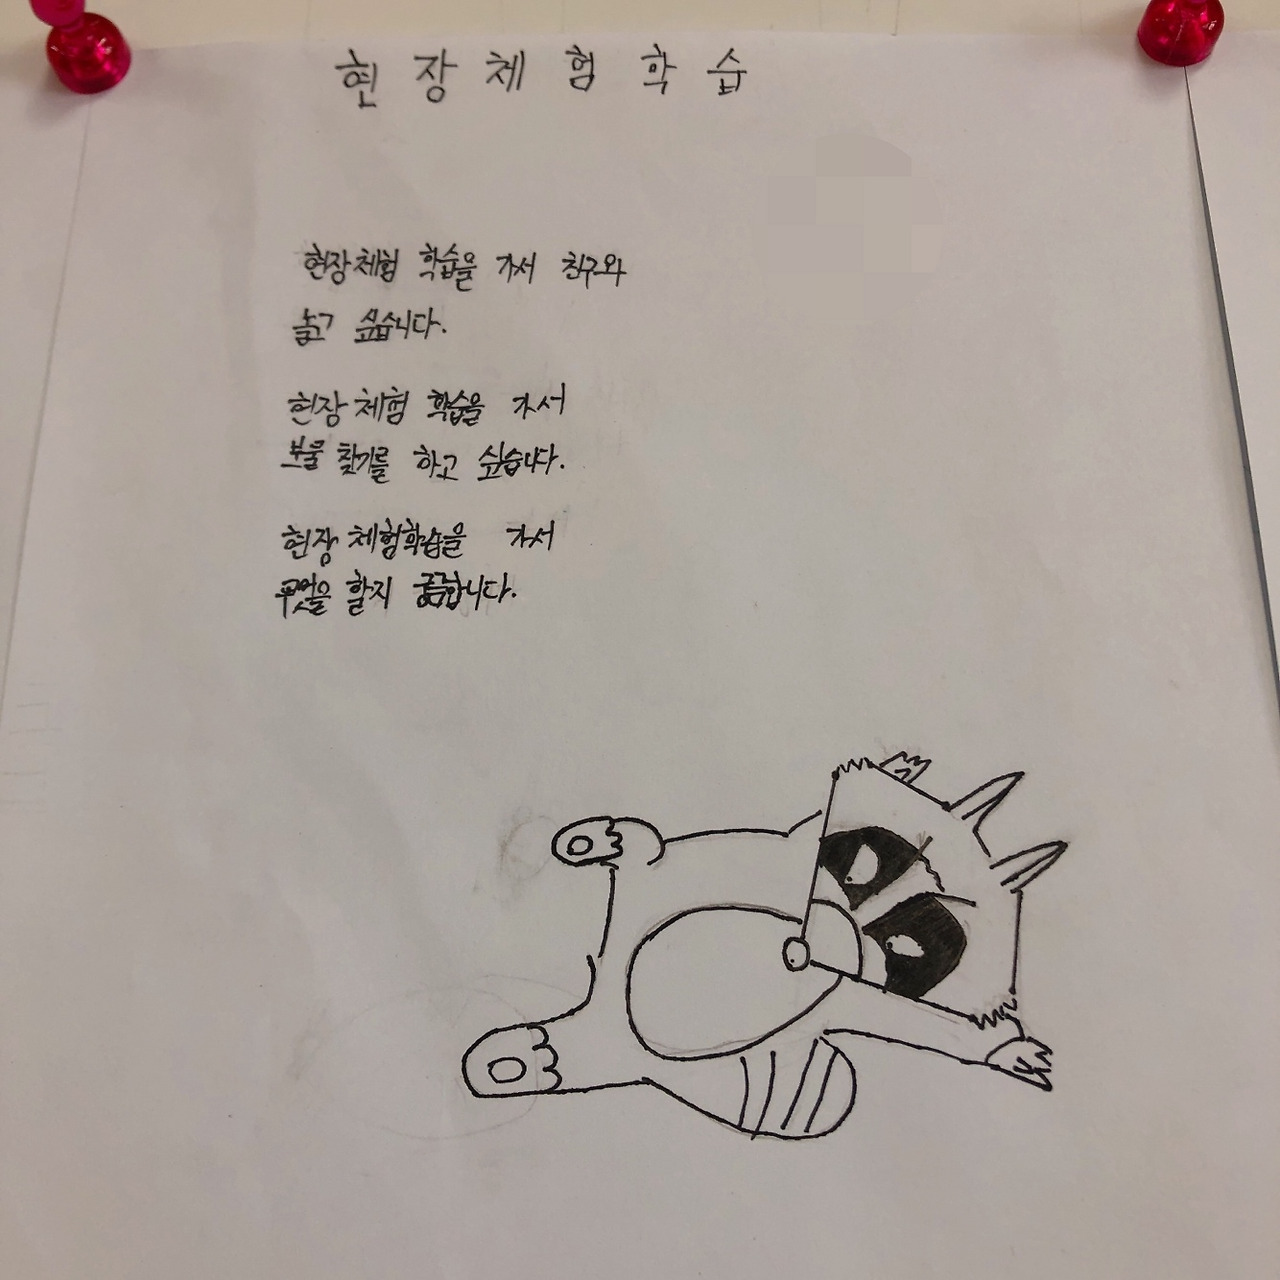 현장체험학습
현장체험 학습을 가서 친구와
놀고 싶습니다.
현장체험 학습을 가서
보물 찾기를 하고 싶습니다.
현장 체험학습을 가서
무엇을 할지 궁금합니다.